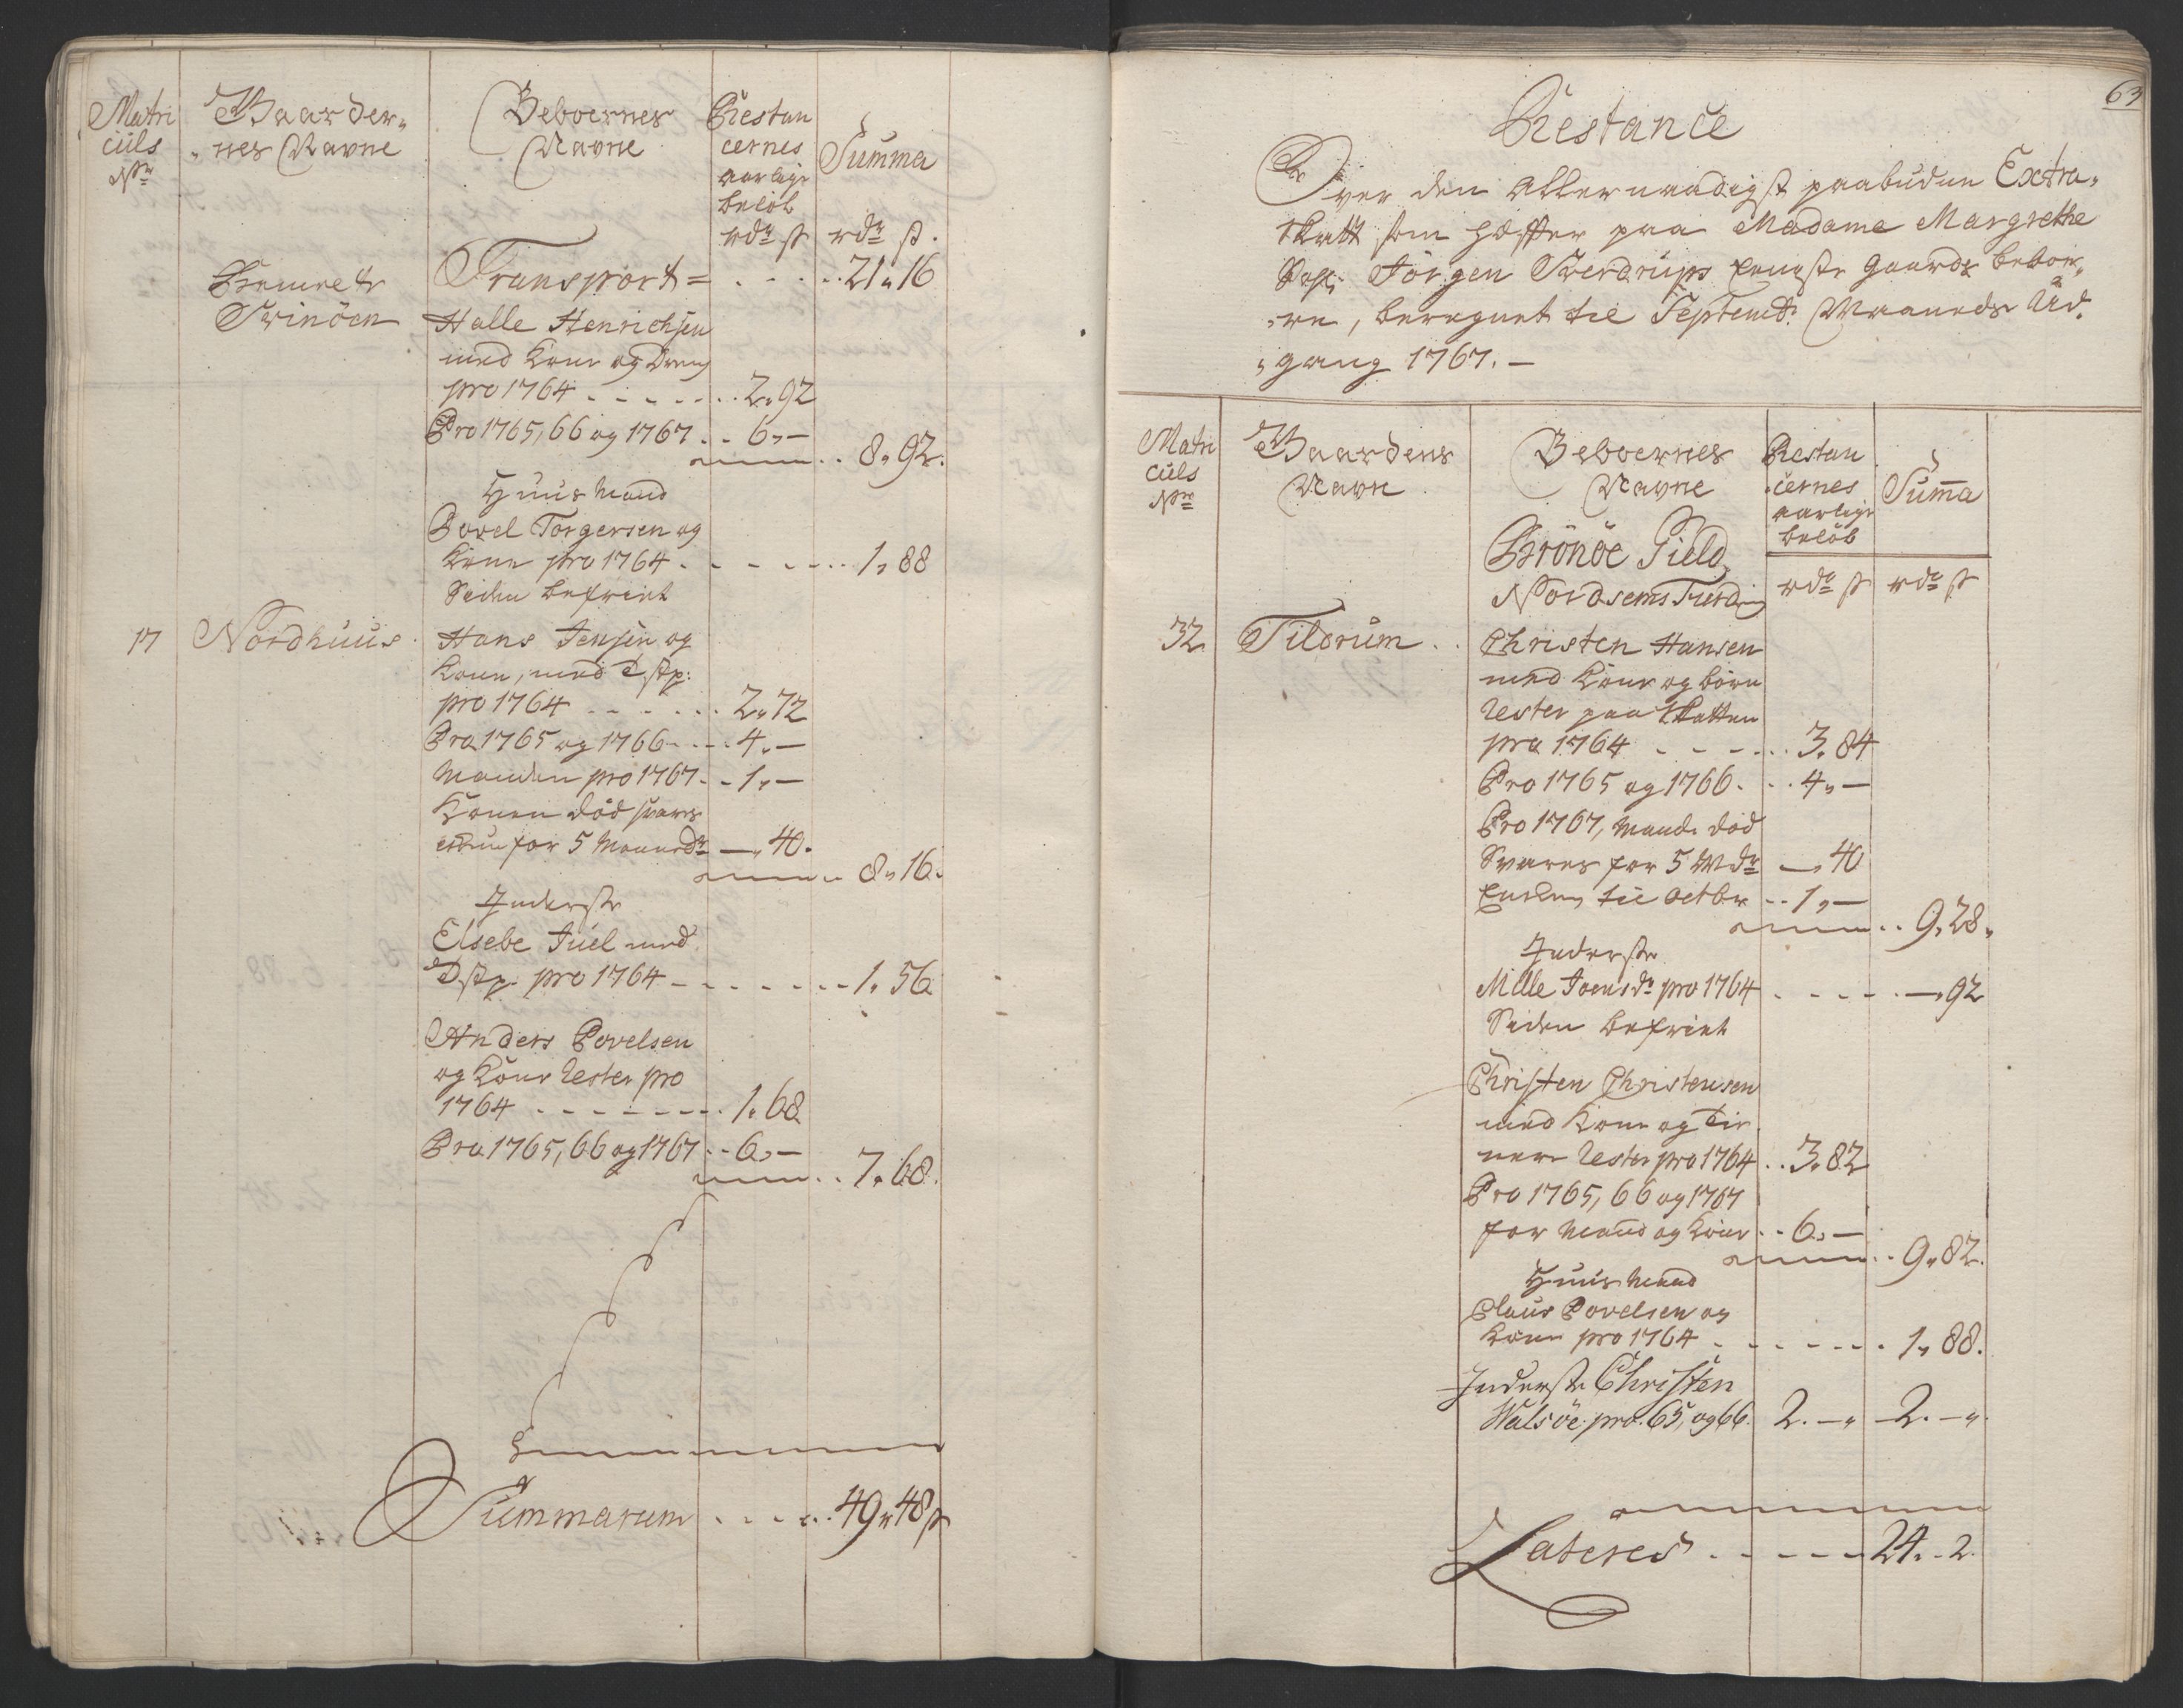 Matri
culs
Nr
Gaarder-
nes Navne
Beboernes
Navne
Restan
cernes
aarlige
beløb
rdr ß
Summa
rdr ß.
Transport = . . . . 21 " 16
Svinöen
Halle Henrichsen
med Kone og Dreng
pro 1764 - - - - - . . 2 " 92
Pro 1765, 66 og 1767 . . 6 " —
8 " 92.
Huusmand
Povel Torgersen og
Kone pro 1764 . - - - - . . 1 " 88
Siden befriet
17 Nordhuus
Hans Jensen og
Kone, med D.stp:
pro 1764 - - - - . . 2 " 72
Pro 1765 og 1766 - - - 4 " —
Manden pro 1767 . - 1 " —
Konen død svares
for 5 Maaneder — " 40.
8 " 16.
Inderste
Elsebe Juel med
D.stp. pro 1764 - - - - - - - 1 " 56
Anders Povelsen
og Kone Rester pro
1764 - - - - - - - . 1 " 68
Pro 1765, 66 og 1767 . . 6 " —
7 " 68.
Summarum . . . . . 49 " 48 ß
63
Restance
Over den Allernaadigst paabudne Extra-
skatt som hæffter paa Madame Margrethe
Sal: Jörgen Sverdrups Gaards beboe-
-re, beregnet til Septembr Maaneds Ud-
-gang 1767. —
Matri
culs
Nr
Gaardens
Navn
Beboernes
Navne
Restan
-cernes
aarlige
beløb
rdr ß
Summa
rdr ß
Brönöe Gield
32 Tilorum . .
Christen Hansen
med Kone og börn
Rester paa Skatten
pro 1764 - - - - . . 3 " 84
Pro 1765 og 1766 . . . 4 " —
Pro 1767, Mand død
Svares for 5 Mdr — " 40
Enken til Octbr . . 1 " —
9 " 28 "
Inderste
Mille Joensdr pro 1764 . - - - - . — " 92
Siden befriet
Christen Christensen
med Kone og Tie-
nere Rester pro 1764 . . 3 " 82
Pro 1765, 66 og 1767
for Mand og Kone . . 6 " —
9 " 82.
Huusmand
Claus Povelsen og
Kone pro 1764 . - - - - - . 1 " 88.
Inderste Christen
Walsöe pro. 65, og 66. 2. — " 2. — "
Lateres . - - - - 24. - 2.